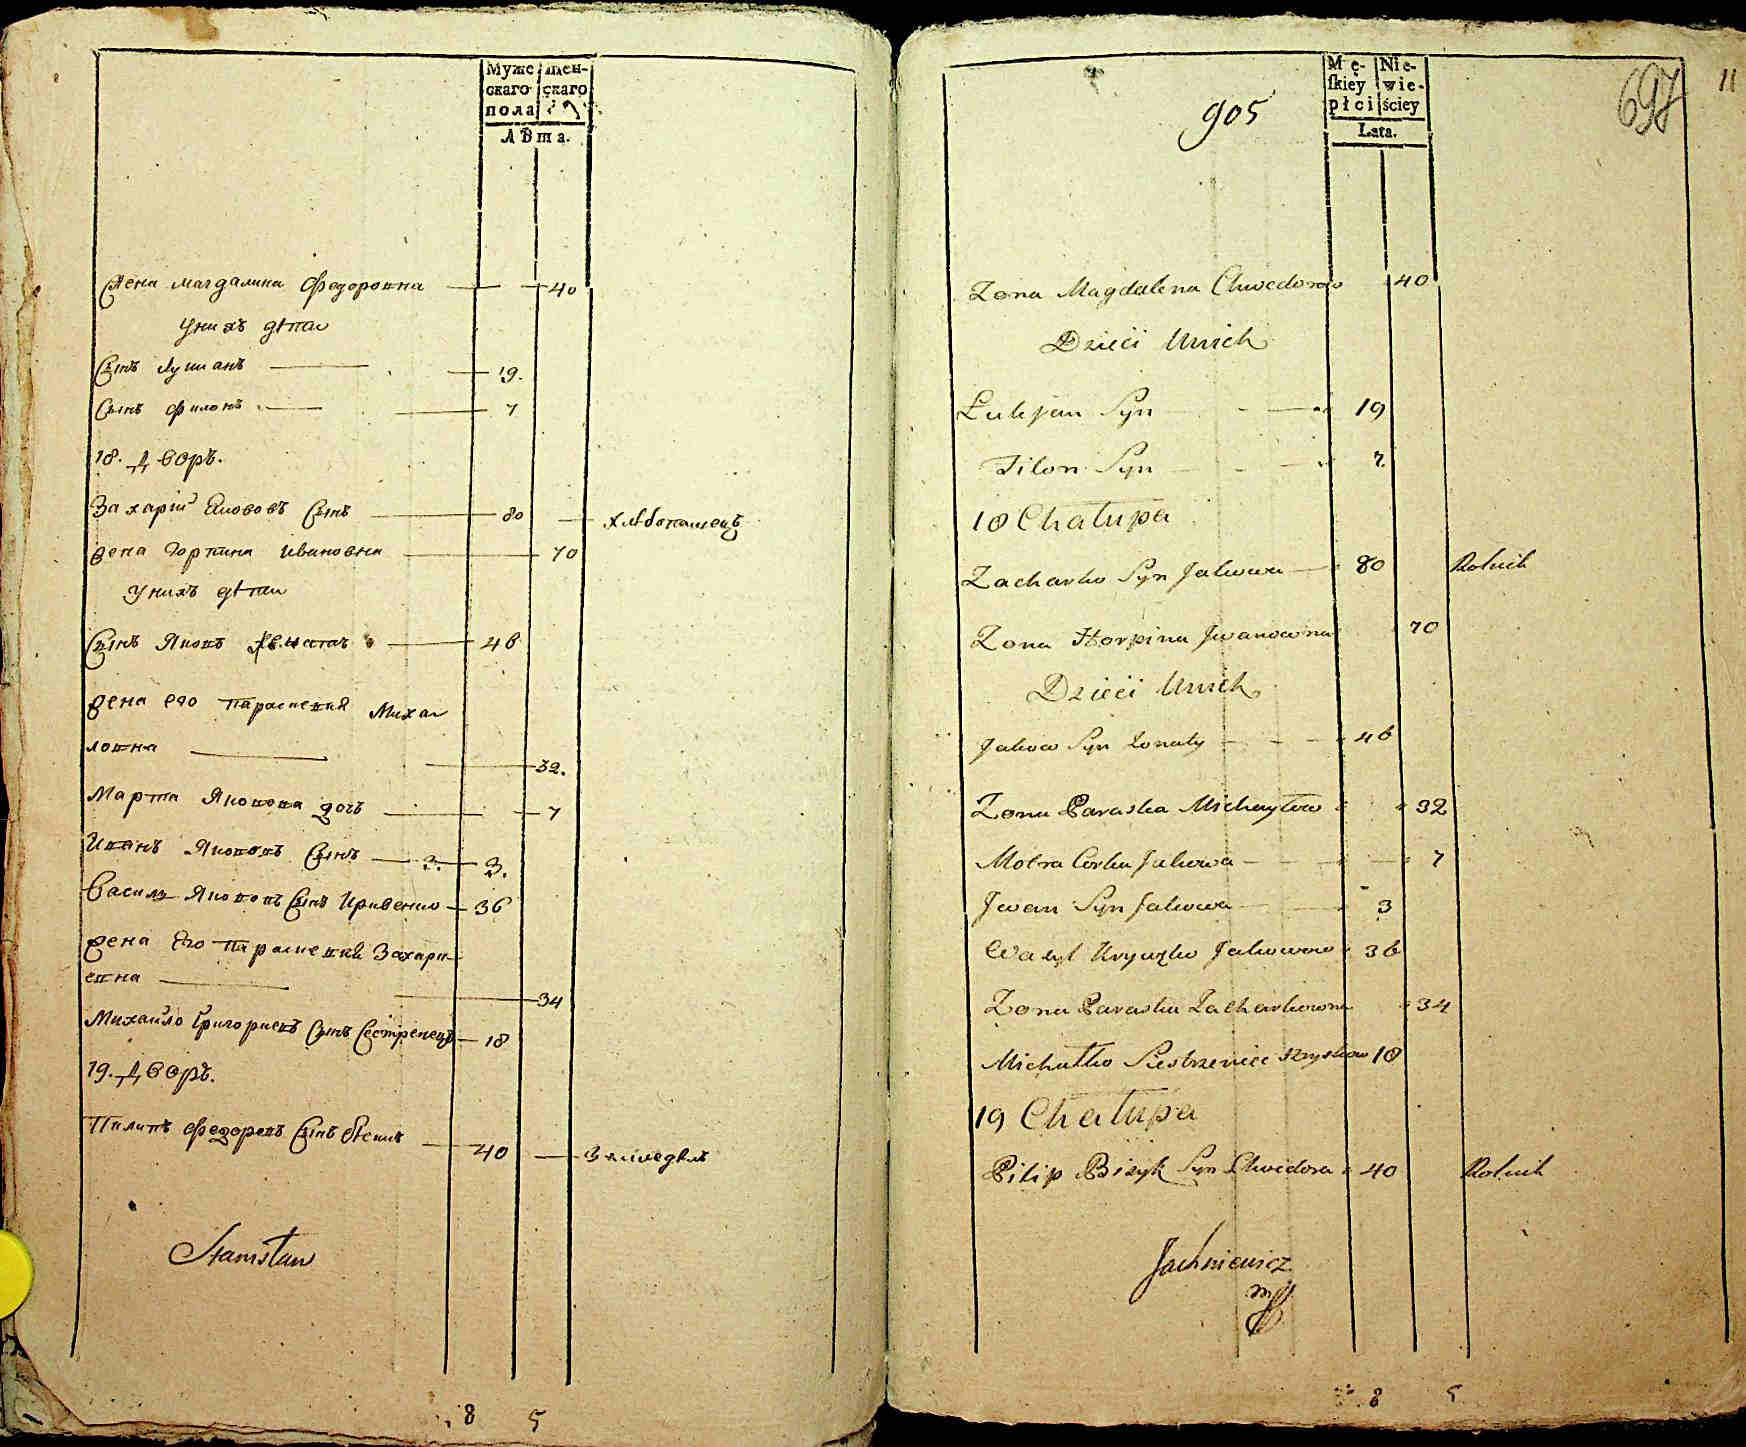 Муже
скаго
пола
жен-
скаго
Лѣта.
Жена магдалина Федоровна 40
У нихъ дѣти
Сынъ Лукианъ 19.
Сынъ филонъ 7
18. Дворъ.
Захарiй Яковъ Сынъ 80 Хлѣбопашецъ
Жена Горпина Ивановна 70
У нихъ дѣти
Сынъ Яковъ 46
Жена его Параскевия Михай
ловна 32.
Марта Яковова дочь 7
Иванъ Яковъ Сынъ 3. 3.
Василь Яковъ Сынъ 36
Жена Его Параскевия Захари
евна 34
Михайло Григориевъ Сынъ Сестренецъ 18
19. Дворъ.
Пилипъ Федоровъ Сынъ 40
Stanisław
8 5
905
697
11
Mę-
skiey
płci
Nie-
wie-
ściey
Lata.
Zona Magdalena Chwedorow 40
Dzieci U nich
Łukjan Syn 19
Filon Syn 7.
18 Chałupa
Zacharko Syn Jakowa 80 Rolnik
Zona Horpina Jwanowna 70
Dzieci U nich
Jakow Syn żonaty 46
Zona Paraska Michayłow 32
Motra Corka Jakowa 7
Jwan Syn Jakowa 3
Wasyl Jakowow 36
Zona Paraska Zacharkowna 34
Michałko Siestrzeniec Hryskow 18
19 Chałupa
Pilip Bizyk Syn Chwedora 40 Rolnik
Jachniewicz
8 5